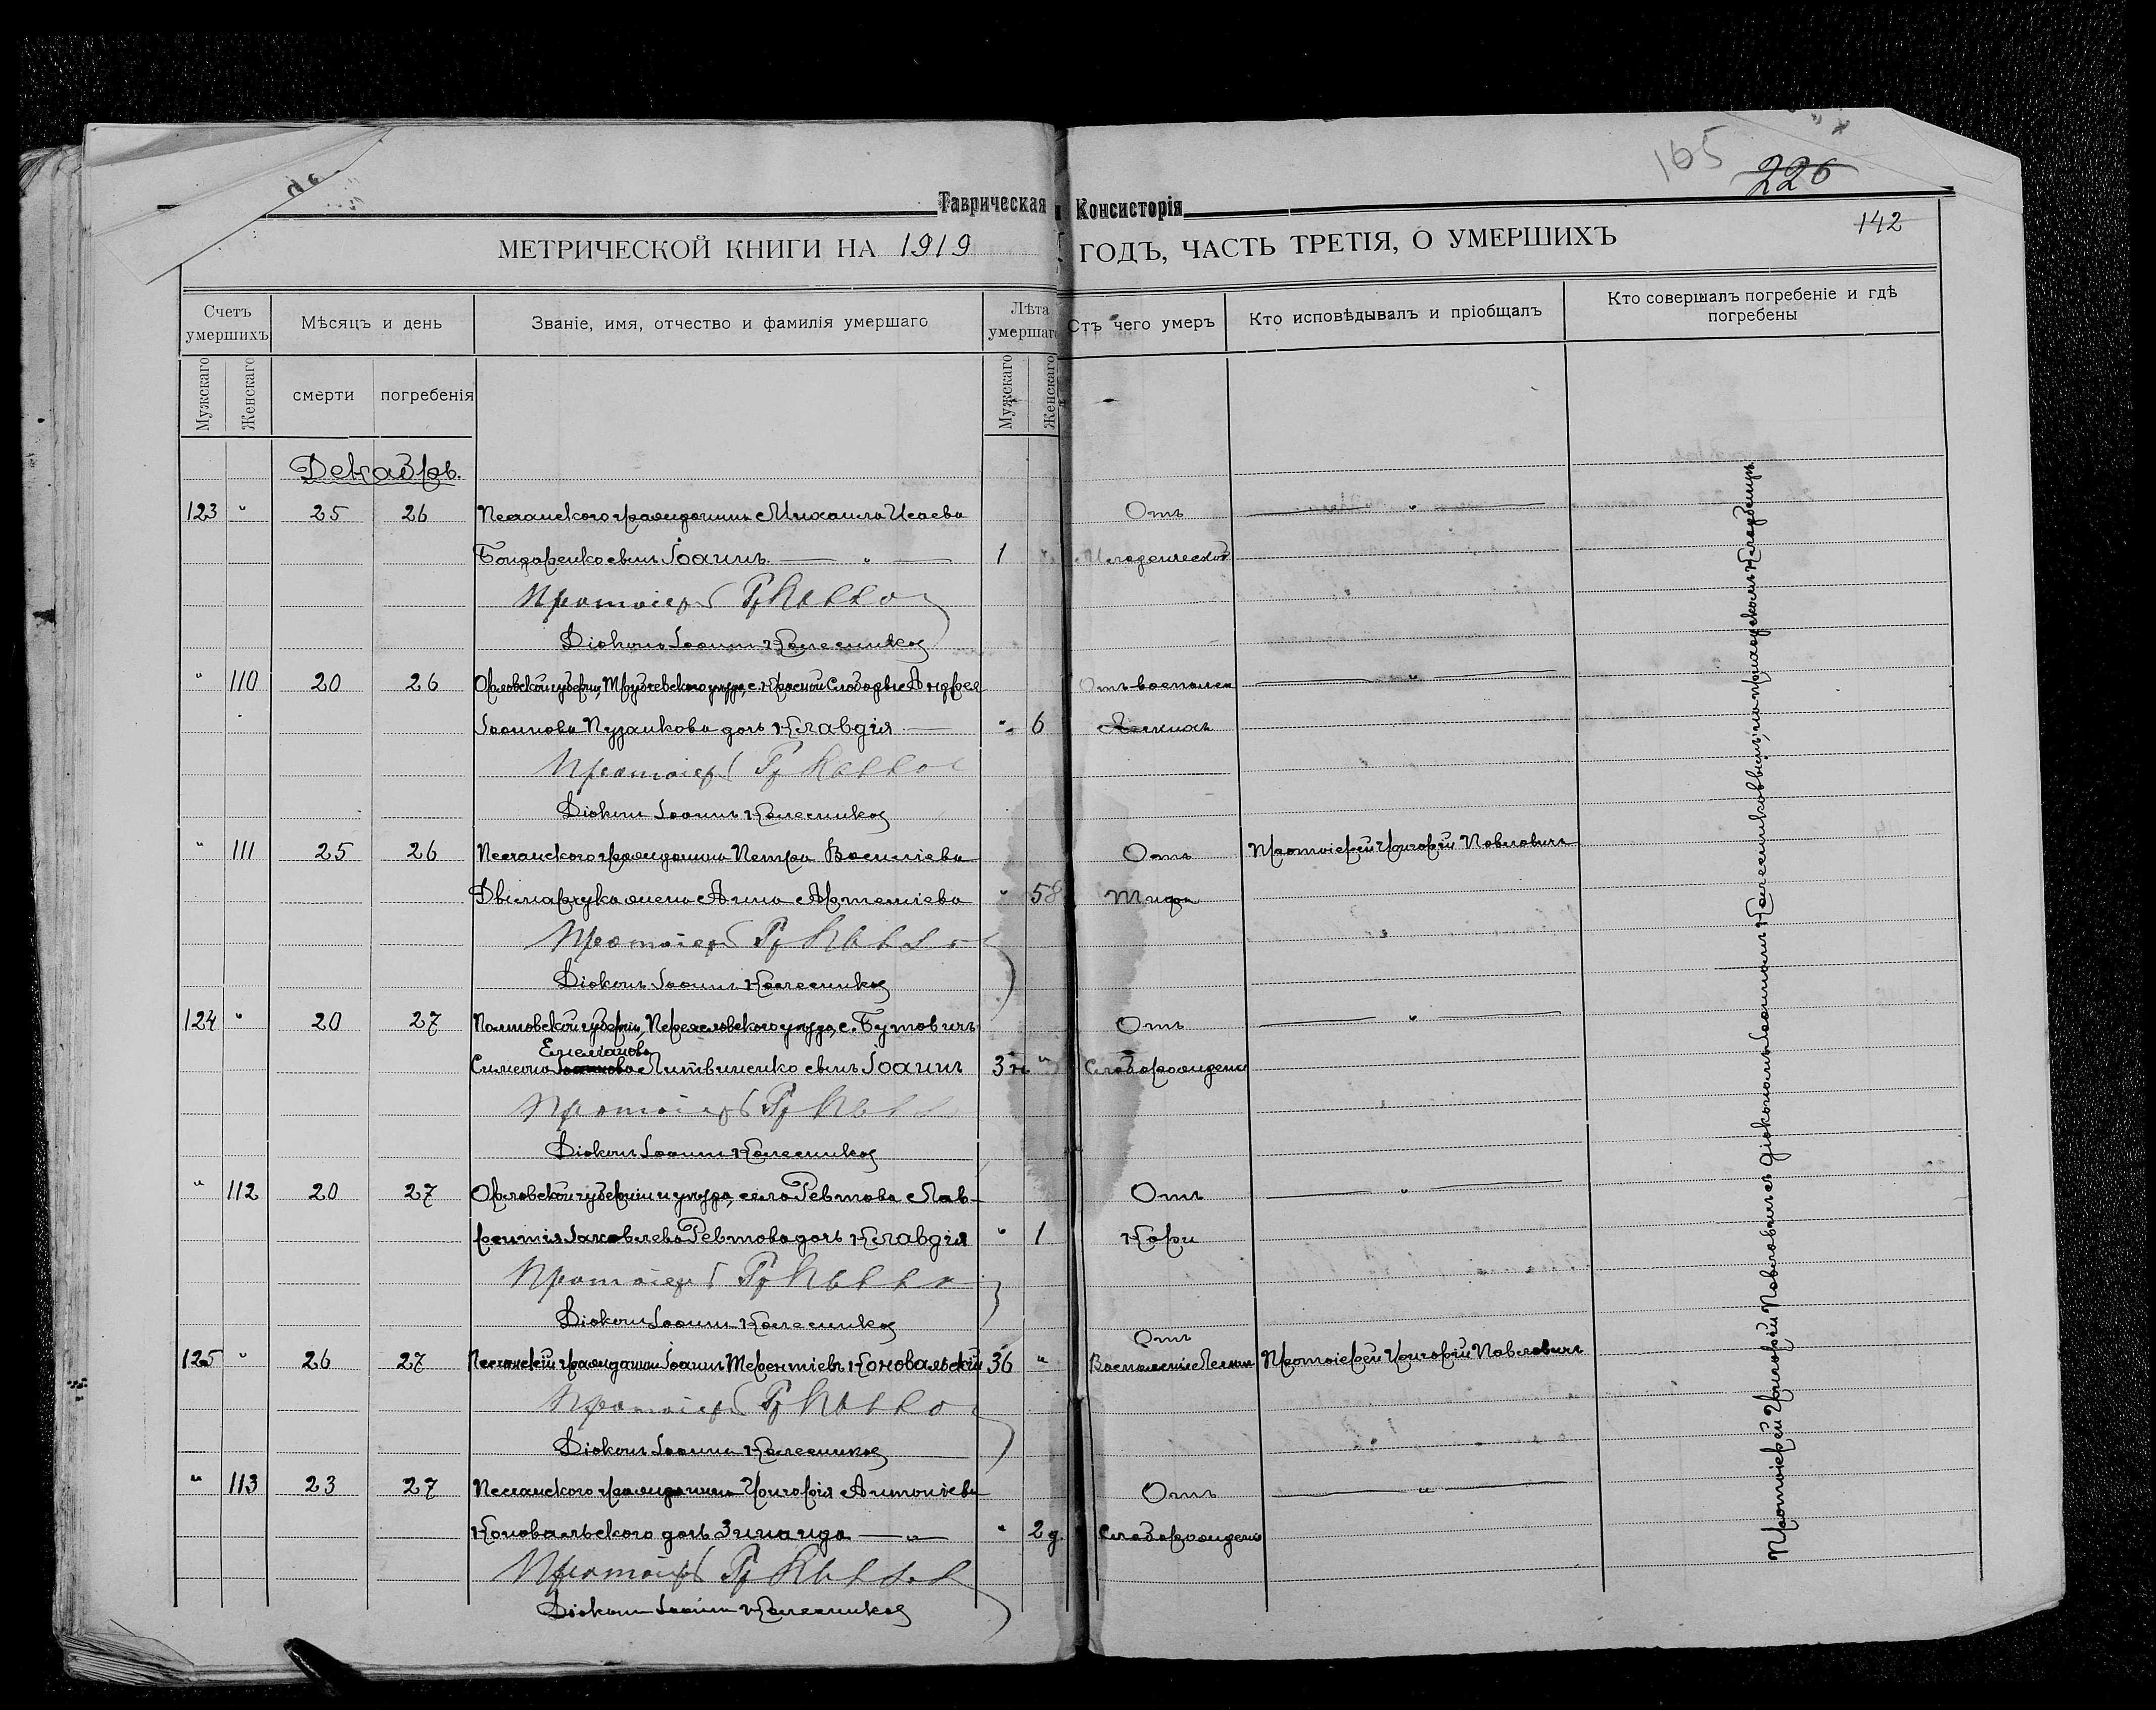 165
226
Таврическая Консисторія
142
МЕТРИЧЕСКОЙ КНИГИ НА 1919 ГОДЪ, ЧАСТЬ ТРЕТІЯ, О УМЕРШИХЪ
Счетъ умершихъ
Мѣсяцъ и день
Званіе, имя, отчество и фамилія умершаго
Лѣта умершаго
Отъ чего умеръ
Кто исповѣдывалъ и пріобщалъ
Кто совершалъ погребеніе и гдѣ погребены
Мужскаго
Женскаго
смерти
погребенія
Мужскаго
Женскаго
Декабрь.
123 " 25 26 гражданина Михаила Исаева Отъ "
Бондаренко сынъ Іоаннъ " 1 " Младенческой
Протоіерей Гр
Діаконъ Іоаннъ Колесниковъ
" 110 20 26 Орловской губерніи, Трубчевского уезда, с. Красной Слободы Андрея Отъ воспален "
Іоаннова Пузанкова дочь Клавдія " 6 легкихъ
Протоіерей Гр
Діаконъ Іоаннъ Колесниковъ
" 111 25 26 гражданина Петра Василіева Отъ Протоіерей Григорій Павловичъ
жена Анна Артеміева " 58 Тифа
Протоіерей Гр
Діаконъ Іоаннъ Колесниковъ
124 " 20 27 Полтовской губерніи, Переяловского уезда, с. Бутовичъ Отъ "
Емеліанова
Симеона Литвиненко сынъ Іоаннъ 3 н " Слаборожденія
Протоіерей Гр
Діаконъ Іоаннъ Колесниковъ
" 112 20 27 Орловской губерніи и уезда, села Ревтова Лав- Отъ "
рентія Іаковлева Ревтова дочь Клавдія " 1 Кори
Протоіерей Гр
Діаконъ Іоаннъ Колесниковъ
Отъ
125 " 26 27 гражданинъ Іоаннъ Терентіевъ Коновальскій 36 " Воспаленіе Легких Протоіерей Григорій Павловичъ
Протоіерей Гр
Діаконъ Іоаннъ Колесниковъ
" 113 23 27 гражданина Григорія Антоніева Отъ "
Коновальского дочь Зинаида " " 2 д. Слаборожденія
Протоіерей Гр
Діаконъ Іоаннъ Колесниковъ
Протоіерей Григорій Павловичъ съ діакономъ Іоанномъ Колесниковымъ, на приходскомъ кладбищѣ